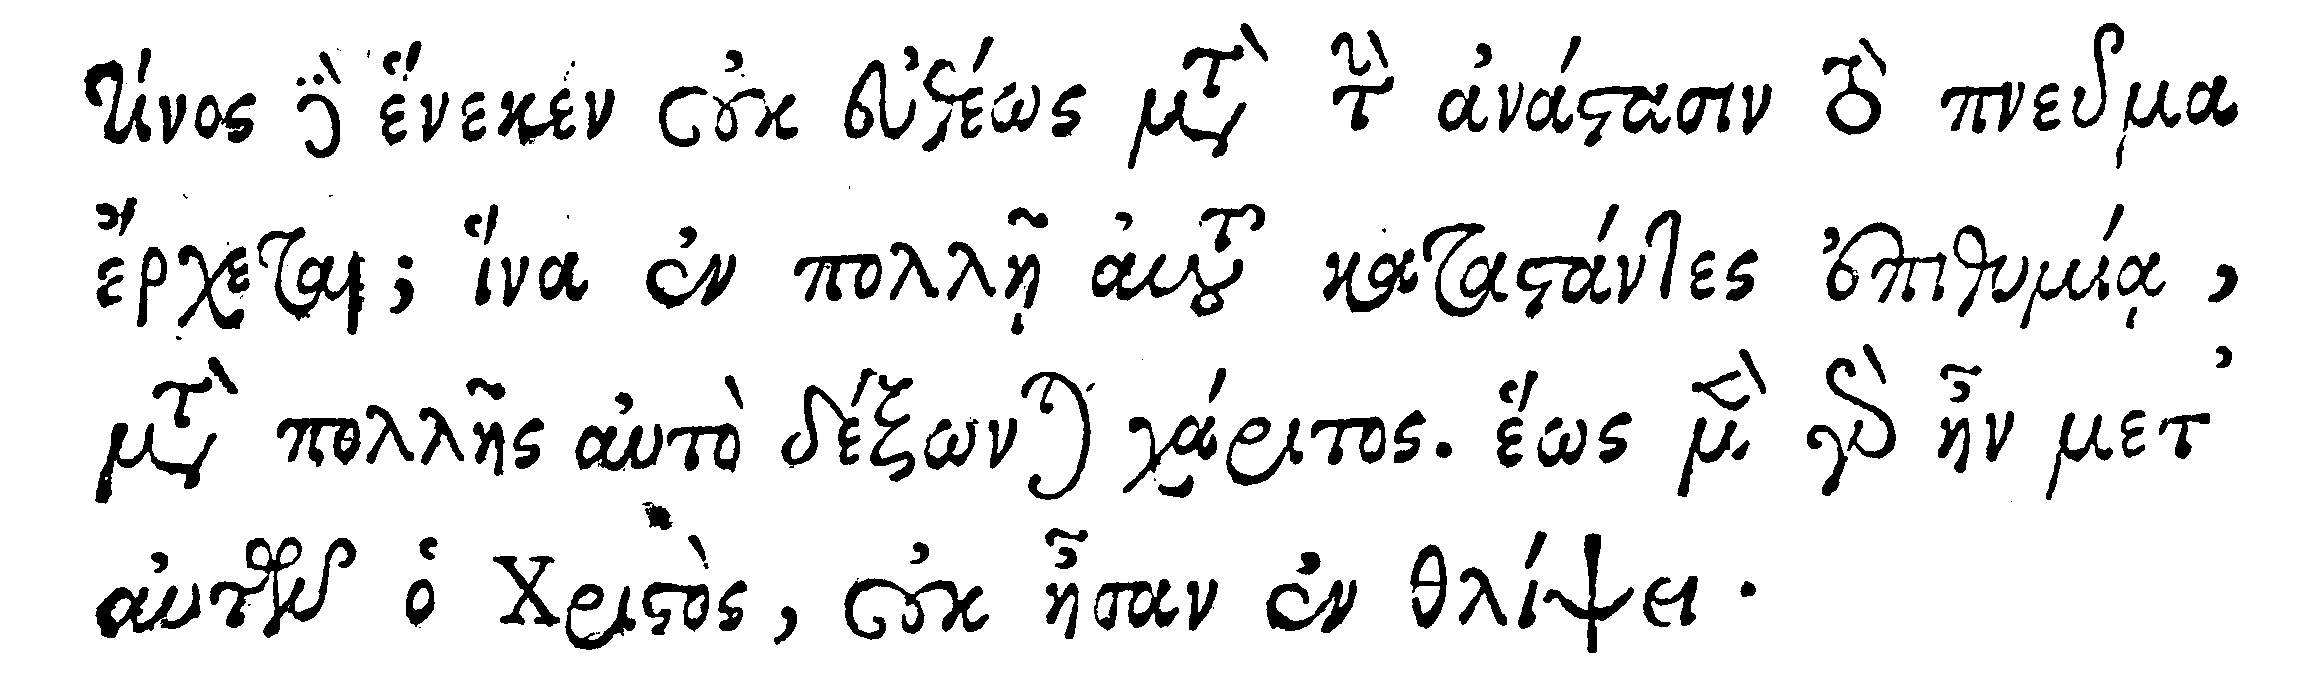 τίνος δὲ ἕνεκεν οὐκ εὐθέως μετὰ τὴν ἀνάστασιν τὸ πνεῦμα
ἔρχεται; ἵνα ἐν πολλῇ αὐτοῦ καταστάντες ἐπιθυμίᾳ,
μετὰ πολλῆς αὐτὸ δέξωνται χάριτος. ἕως μὲν γὰρ ἦν μετ᾽
αὐτῶν ὁ Χριστὸς, οὐκ ἦσαν ἐν θλίψει.